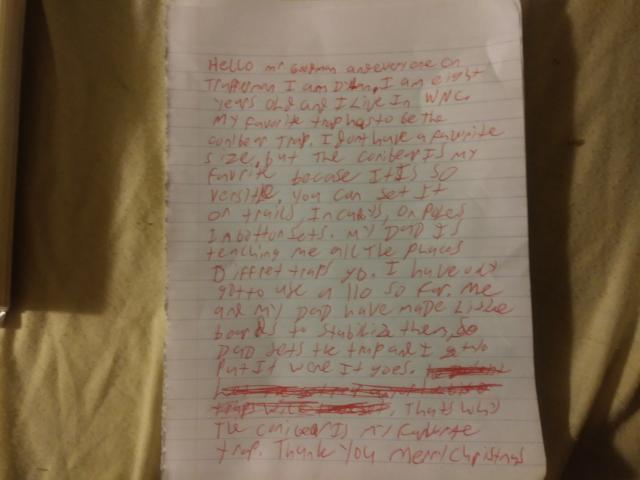 Hello mr Goodman and everyone on
Trapperman I am Dylan, I am eight
years old and I Live In WNC.
my favorite trap has to be the
conibear Trap. I dont have a favorite
size, but The conibear Is my
favorite becase It Is so
versitle, you can set It
on trails, In cubbys, on Poles
In bottom sets. my DaD Is
teaching me all The places
Diffret traps go. I have only
got to use a 110 so far. me
and my DaD have made Little
boards to stabilize them, so
DaD sets the trap and I get to
Put It were It goes.
Thats why
The conibear Is my favorite
trap. Thank You merry Christmas